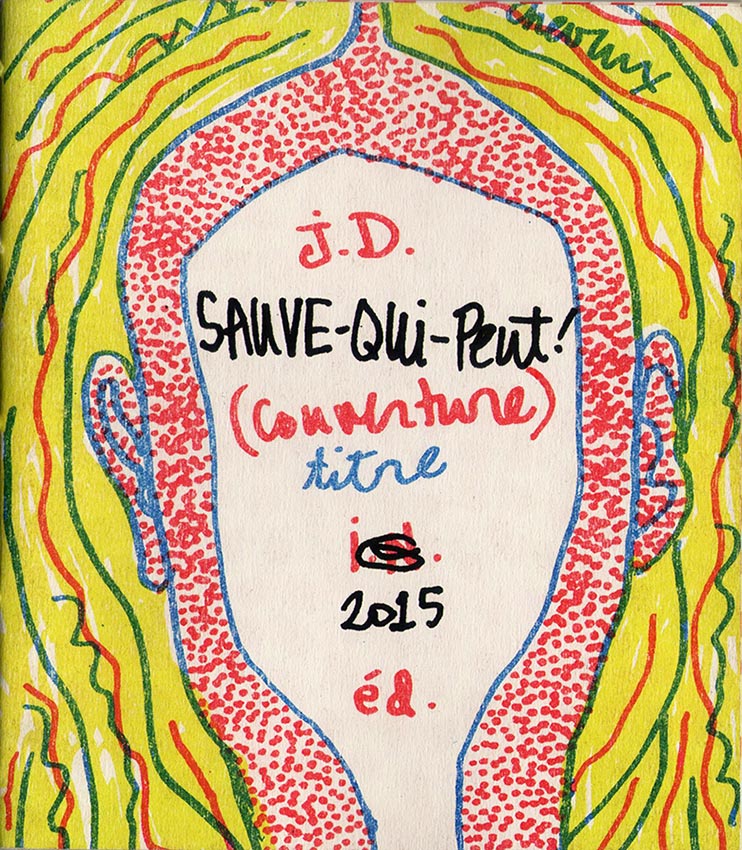 j.D.
SAUVE-QUI-PEUT!
(couverture)
titre
2015
éd.